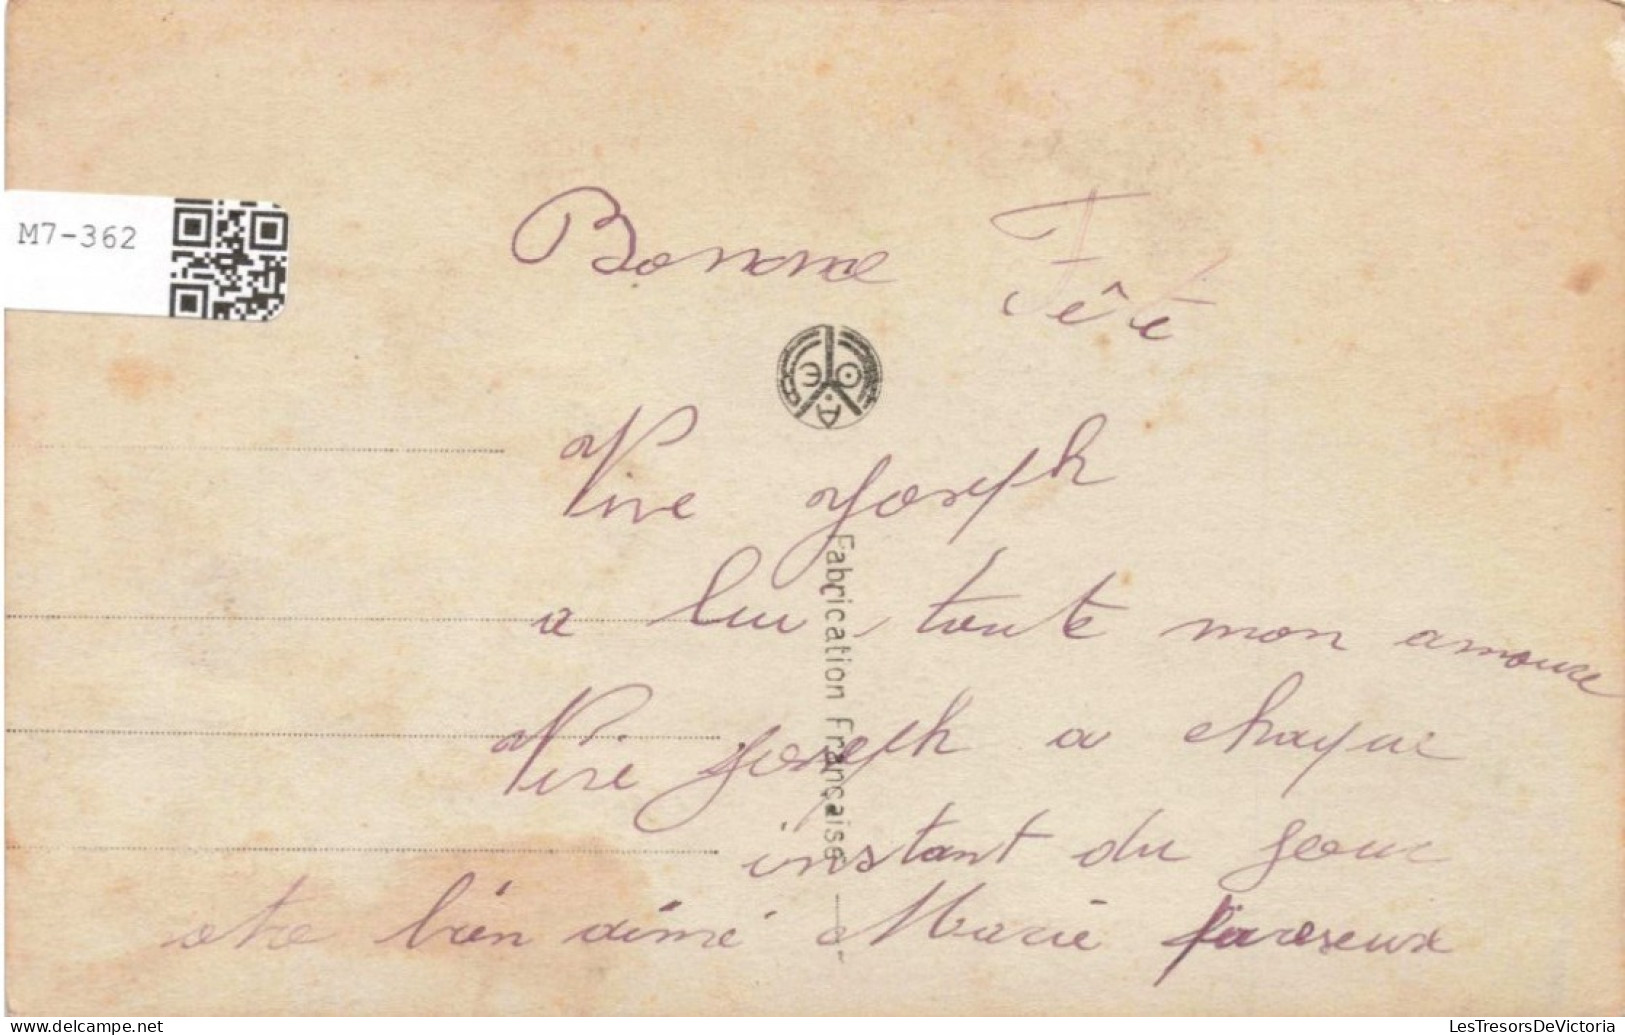 M7-362
Bonne Fête
Vive Joseph
a lui toute mon amour
Vive Joseph a chaque
instant du jour
bien aimé Marie
Fabrication Française
www.delcampe.net
LesTresorsDeVictoria